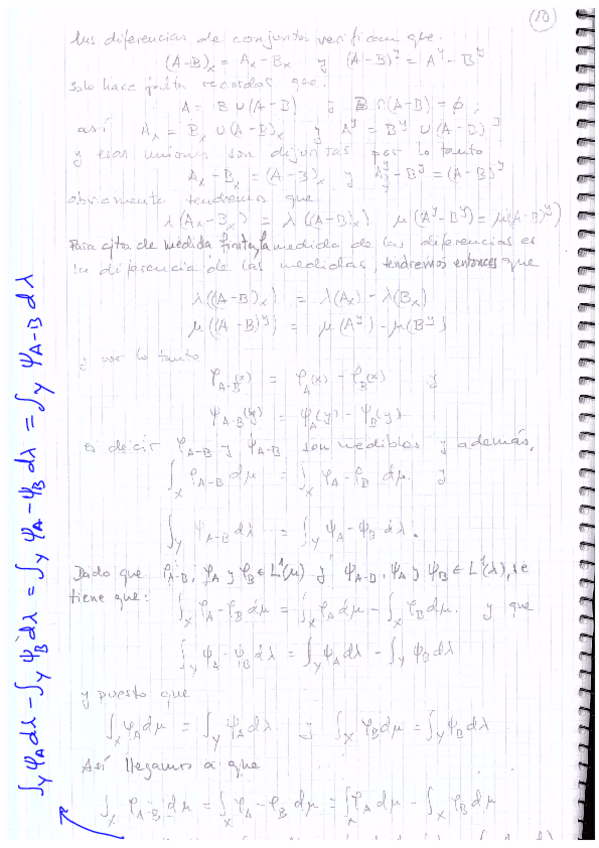 (10)
las diferencias de conjuntos verifican que.
(A-B)ₓ = Aₓ - Bₓ y (A-B)ʸ = Aʸ - Bʸ
solo hace falta recordar que.
A = B ∪ (A-B) y B ∩ (A-B) = ϕ ;
así Aₓ = Bₓ ∪ (A-B)ₓ y Aʸ = Bʸ ∪ (A-B)ʸ
y esas uniones son disjuntas por lo tanto
Aₓ - Bₓ = (A-B)ₓ y Aʸ - Bʸ = (A-B)ʸ
obviamente tendremos que
λ(Aₓ-Bₓ) = λ((A-B)ₓ) μ(Aʸ-Bʸ) = μ((A-B)ʸ)
Para cjtos. de medida finita, la medida de las diferencias es
la diferencia de las medidas, tendremos entonces que
λ((A-B)ₓ) = λ(Aₓ) - λ(Bₓ)
μ((A-B)ʸ) = μ(Aʸ) - μ(Bʸ)
y por lo tanto
φ_{A-B}(x) = φ_A(x) - φ_B(x) y
ψ_{A-B}(y) = ψ_A(y) - ψ_B(y)
es decir φ_{A-B} y ψ_{A-B} son medibles y además,
∫_X φ_{A-B} dμ = ∫_X φ_A - φ_B dμ. y
∫_Y ψ_{A-B} dλ = ∫_Y ψ_A - ψ_B dλ.
Dado que φ_{A-B}, φ_A y φ_B ∈ L¹(μ) y ψ_{A-B}, ψ_A y ψ_B ∈ L¹(λ), se
tiene que:
∫_X φ_A - φ_B dμ = ∫_X φ_A dμ - ∫_X φ_B dμ. y que
∫_Y ψ_A - ψ_B dλ = ∫_Y ψ_A dλ - ∫_Y ψ_B dλ
y puesto que
∫_X φ_A dμ = ∫_Y ψ_A dλ y ∫_X φ_B dμ = ∫_Y ψ_B dλ
Así llegamos a que
∫_X φ_{A-B} dμ = ∫_X φ_A - φ_B dμ = ∫_X φ_A dμ - ∫_X φ_B dμ
∫_Y ψ_A dλ - ∫_Y ψ_B dλ = ∫_Y ψ_A - ψ_B dλ = ∫_Y ψ_{A-B} dλ